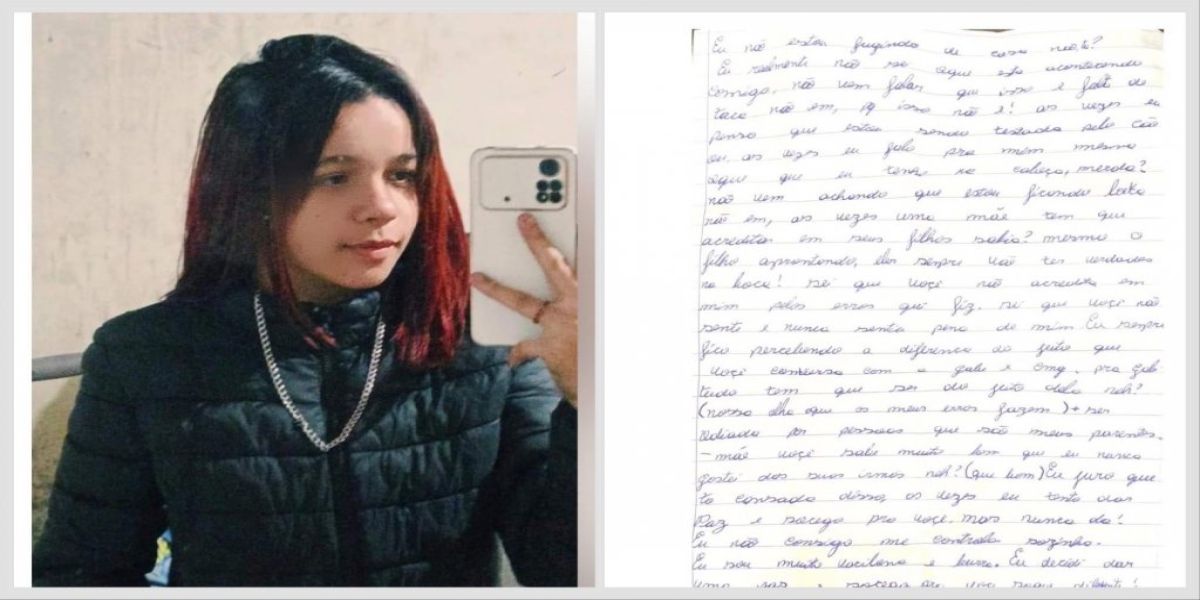 Eu não estou fugindo de casa não, tá?
Eu realmente não sei oque está acontecendo
comigo, não vem falar que isso é falta de
taca não em, pq isso não é! as vezes eu
penso que estou sendo testada pelo cão
ou, as vezes eu falo pra mim mesma
oque que eu tenho na cabeça, merda?
não vem achando que estou ficando louca
não em, as vezes uma mãe tem que
acreditar em seus filhos sabia? mesmo o
filho aprontando, eles sempre vão ter verdades
na boca! sei que voçê não acredita em
mim pelos erros que fiz. sei que voçê não
sente e nunca sentiu pena de mim. Eu sempre
fico percebendo a diferença do jeito que
voçê conversa com a gabi e cmg. pra gabi
tudo tem que ser do jeito dela neh?
(nossa olha que os meus erros fazem) + ser
odiada por pessoas que são meus parentes.
- mãe voçê sabe muito bem que eu nunca
gostei dos seus irmãos neh? (que bom) Eu juro que
to cansada disso, as vezes eu tento dar
Paz e socego pra voçê, mas nunca dá!
Eu não consigo me controla sozinha.
Eu sou muito vacilona e burra. Eu decidi dar
uma paz e socego pra voçê